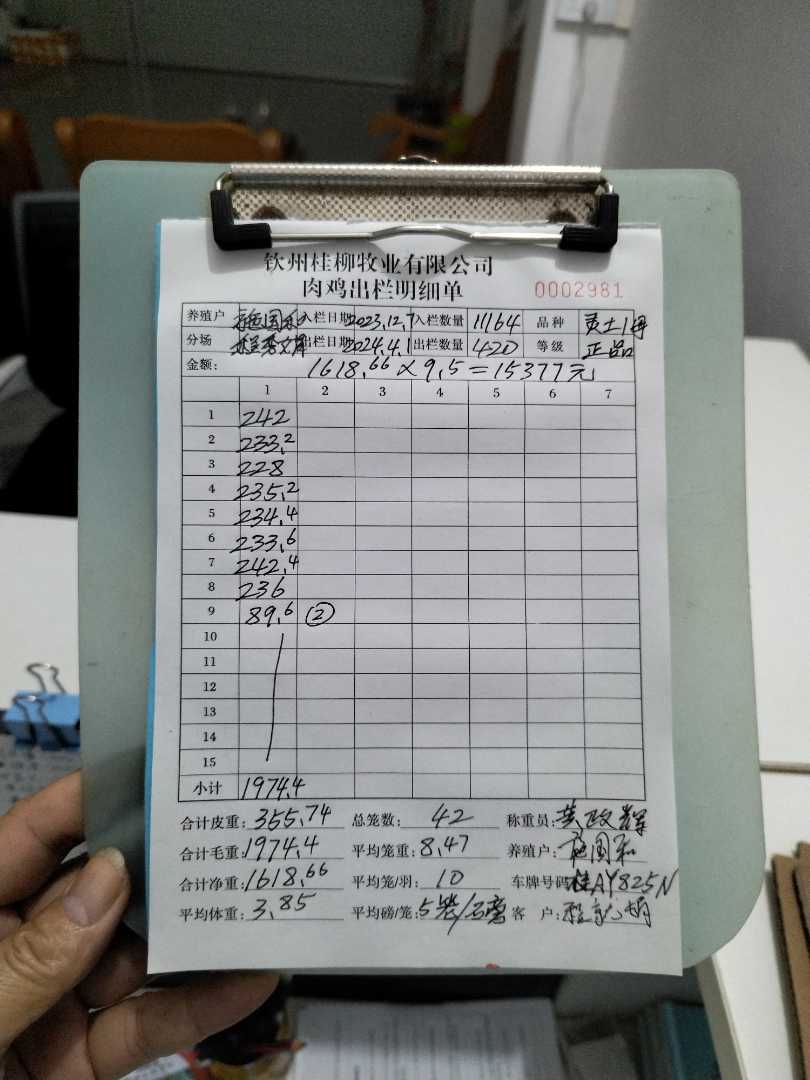 钦州桂柳牧业有限公司
肉鸡出栏明细单 0002981
养殖户 国和 入栏日期 2023.12.7 入栏数量 11164 品种 灵土1号
分场 出栏日期 2024.4.1 出栏数量 420 等级 正品
金额: 1618.66×9.5=15377元
1 2 3 4 5 6 7
1 242
2 233.2
3 228
4 235.2
5 234.4
6 233.6
7 242.4
8 236
9 89.6 ②
10
11
12
13
14
15
小计 1974.4
合计皮重: 355.74 总笼数: 42 称重员: 黄政辉
合计毛重: 1974.4 平均笼重: 8.47 养殖户: 国和
合计净重: 1618.66 平均笼/羽: 10 车牌号码 桂AY825N
平均体重: 3.85 平均磅/笼: 5 客 户: